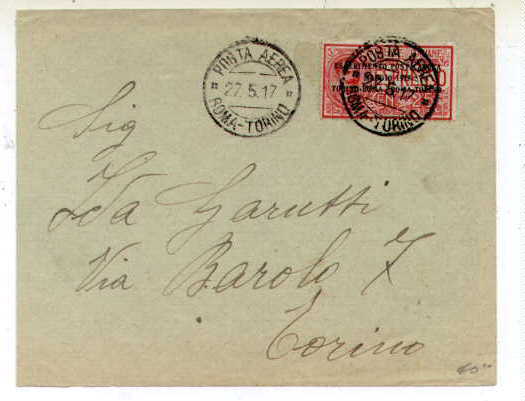 POSTA AEREA
27.5.17
ROMA-TORINO
POSTA AEREA
27.5.17
ROMA-TORINO
ESPERIMENTO POSTA AEREA
MAGGIO 1917
TORINO-ROMA · ROMA-TORINO
Sig
Ida Garutti
Via Barolo 7
Torino